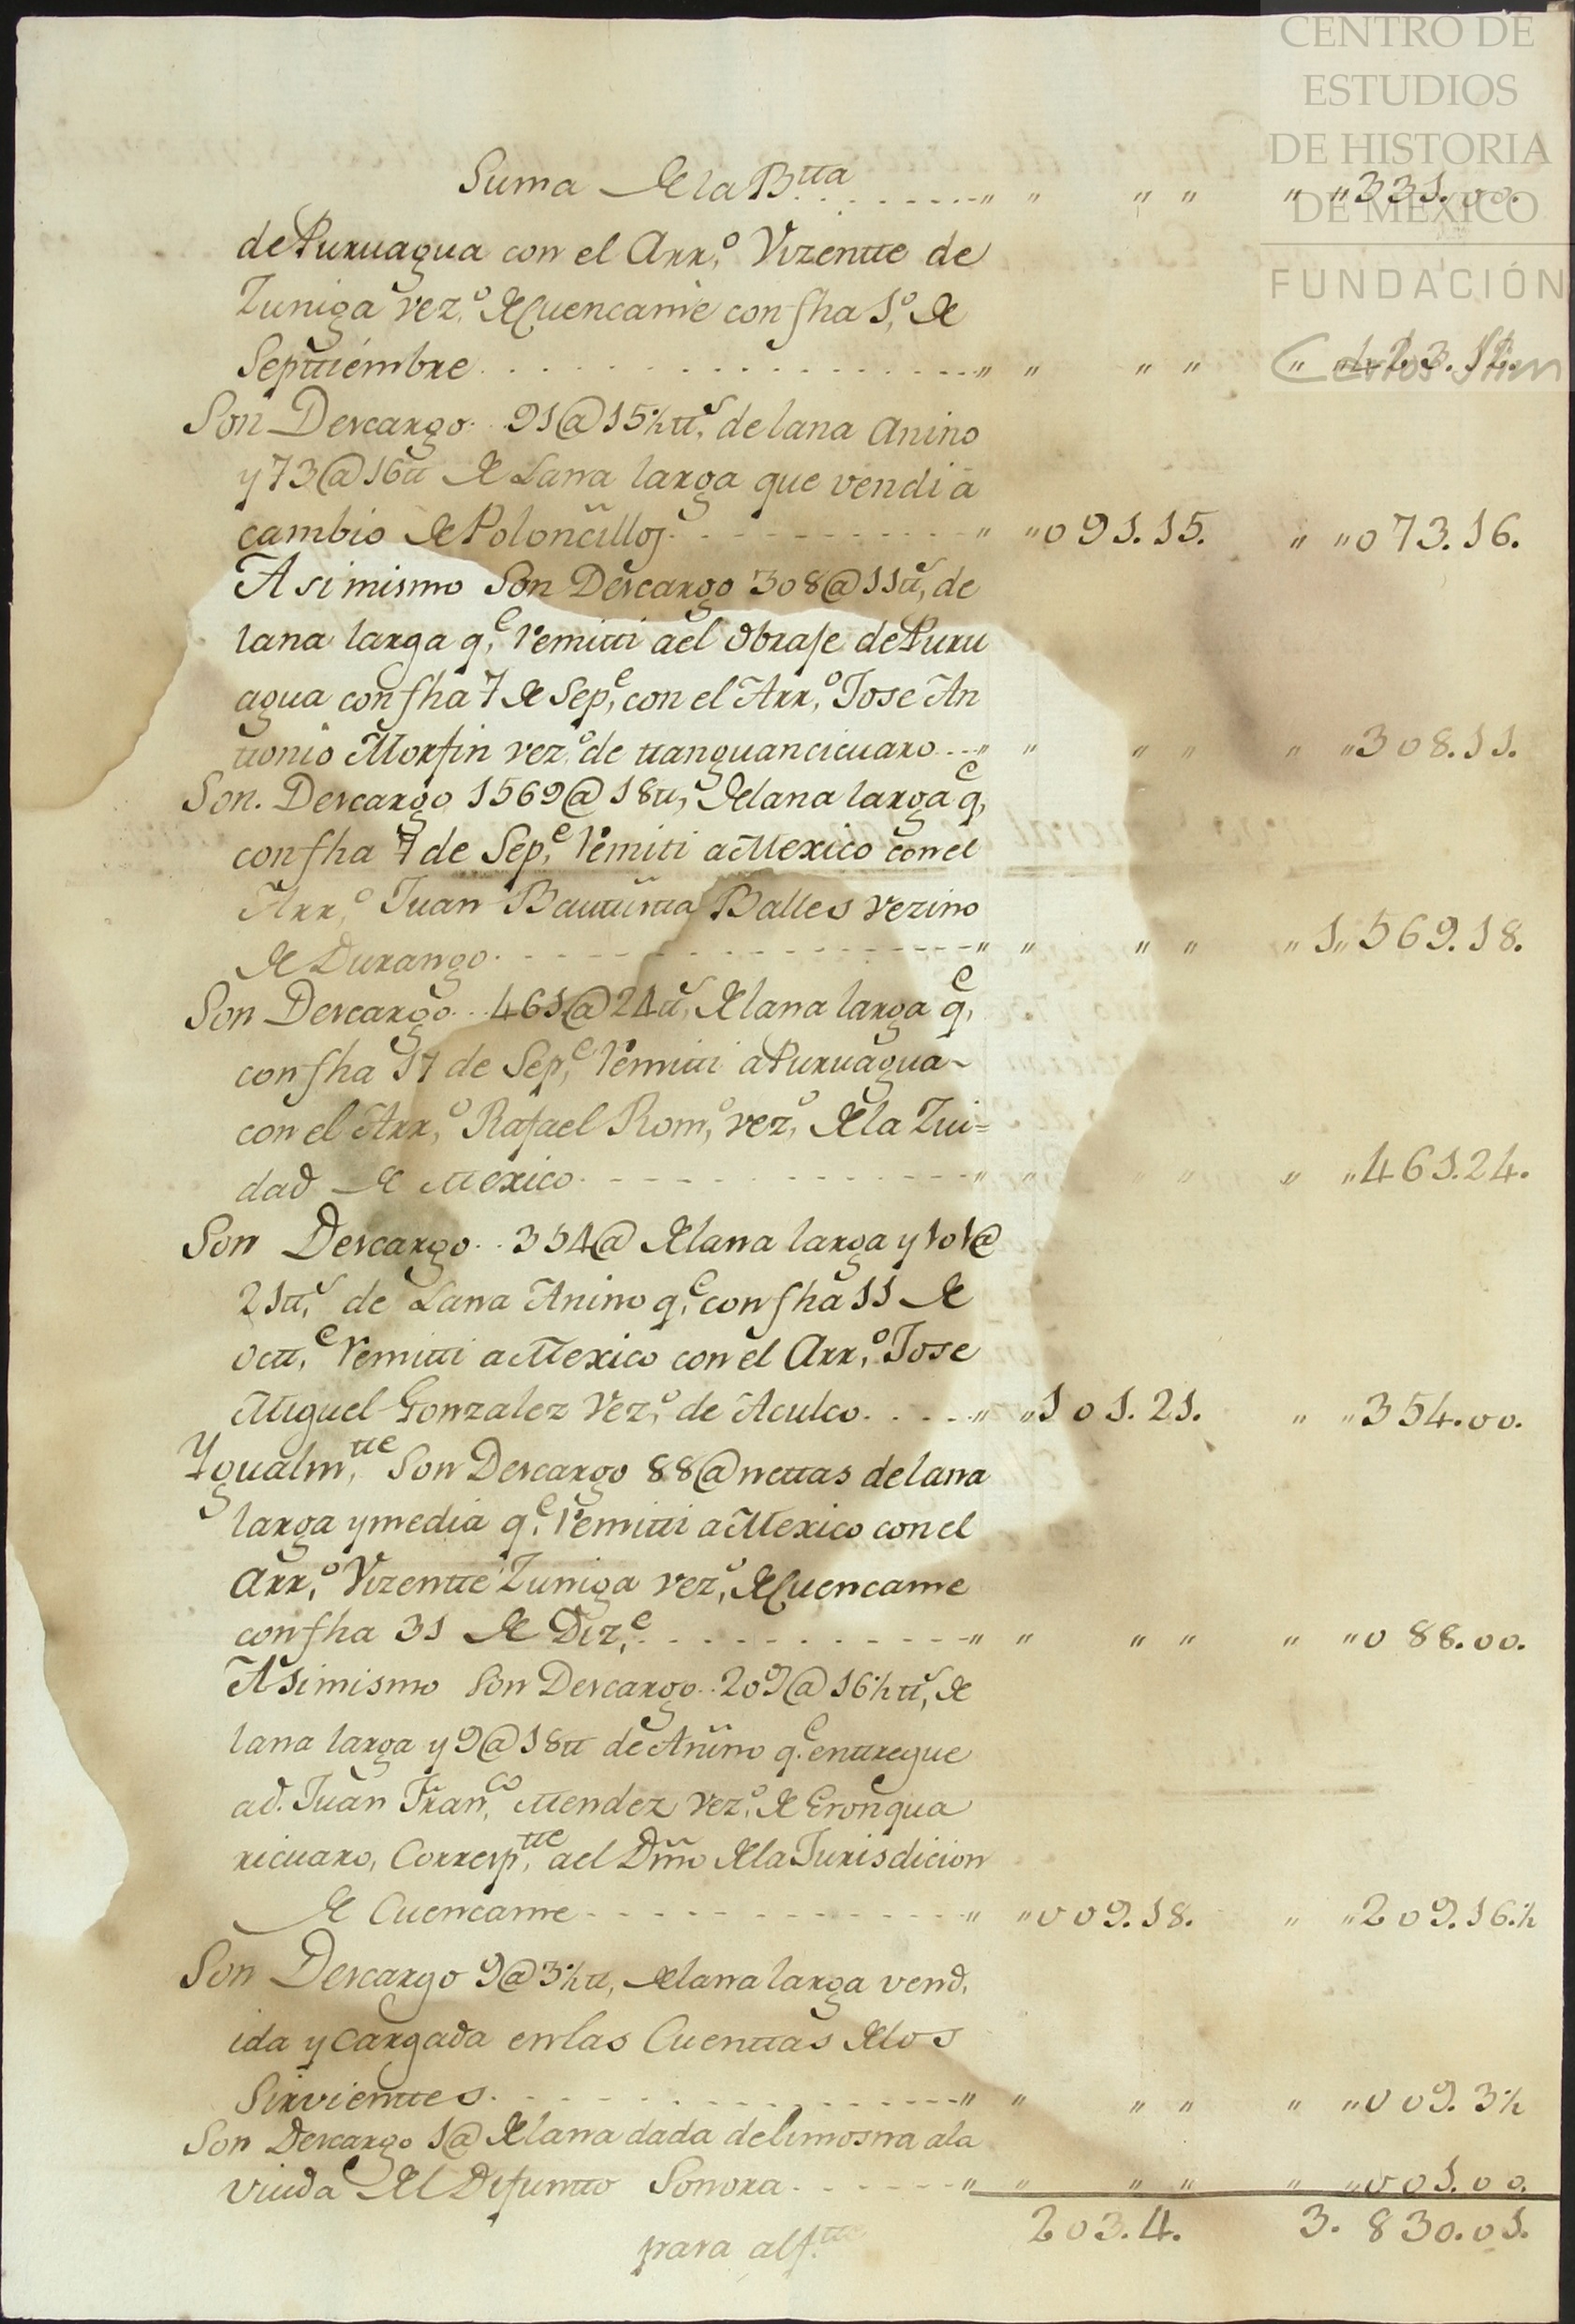 CENTRO DE
ESTUDIOS
DE HISTORIA
DE MÉXICO
FUNDACIÓN
Carlos Slim
Suma de la B.tta . . . . . . . . . " " " " " " 331. 00.
de Puruagua con el Arr.o Vizentte de
Zuniga vez.o de Cuencame con fha 1.o de
Septtiembre . . . . . . . . . . . . " " " " " " 423. 12.
Son Descargo. . 91@15½ tt.s de lana Anino
y 73@16 tt de Lana larga que vendi à
cambio de Poloncillos . . . . . . . . " " 091. 15. " " 073. 16.
Asimismo Son Descargo 308@11 tt.s de
lana larga q.e Remitti ael Obraje de Puru
agua con fha 7 de Sep.e con el Arr.o Jose An
ttonio Morfin vez.o de ttanguancicuaro . . . " " " " " " 308. 11.
Son. Descargo 1569@18 tt.s de lana larga q.e
con fha 7 de Sep.e Remiti a Mexico con el
Arr.o Juan Bauttista Balles vezino
de Durango . . . . . . . . . . . . " " " " " 1" 569. 18.
Son Descargo . . 461@24 tt.s de lana larga q.e
con fha 17 de Sep.e Remitti a Puruagua -
con el Arr.o Rafael Rom.o vez.o de la Zui=
dad de Mexico . . . . . . . . . . . " " " " " " 461. 24.
Son Descargo . . 354@ de lana larga y 101@
21 tt.s de Lana Anino q.e con fha 11 de
Octt.e Remitti a Mexico con el Arr.o Jose
Miguel Gonzalez Vez.o de Aculco . . . . " " 101. 21. " " 354. 00.
Ygualm.tte Son Descargo 88@ nettas de lana
larga y media q.e Remitti a Mexico con el
Arr.o Vizentte Zuniga vez.o de Cuencame
con fha 31 de Diz.e . . . . . . . . . " " " " " " 0 88. 00.
Asimismo Son Descargo . . 209@16½ tt.s de
lana larga y 9@18 tt de Anino q.e enttregue
a d. Juan Fran.co Mendez vez.o de Erongua
ricuaro, Corresp.tte ael Dmo de la Jurisdicion
de Cuencame . . . . . . . . . . . . " " 009. 18. " " 209. 16.½
Son Descargo 9@3½ tt, de lana larga vend.
ida y Cargada en las Cuenttas de los
Sirvienttes . . . . . . . . . . . . " " " " " " 009. 3½
Son Descargo 1@ de lana dada de limosna a la
viuda del Difuntto Sonora . . . . . . " " " " " " 001. 00.
para al f.tte 203. 4. 3. 830. 01.